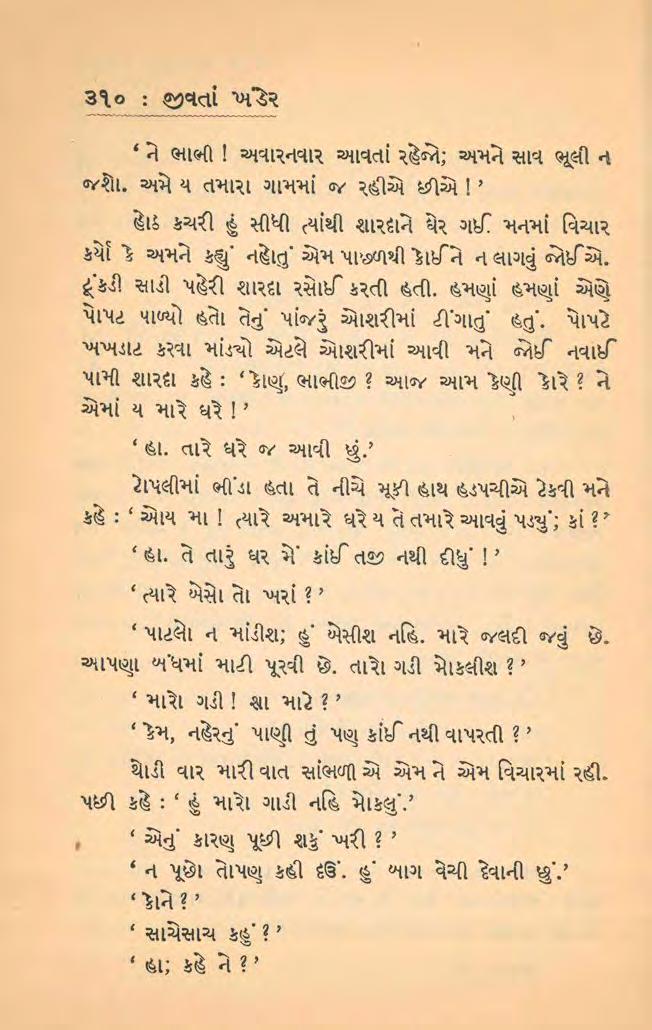 ૩૧૦ : જીવતાં ખંડેર
‘ ને ભાભી ! અવારનવાર આવતાં રહેજો; અમને સાવ ભૂલી ન
જશો. અમે ય તમારા ગામમાં જ રહીએ છીએ ! ’
હોઠ કચરી હું સીધી ત્યાંથી શારદાને ઘેર ગઈ. મનમાં વિચાર
કર્યો કે અમને કહ્યું નહોતું એમ પાછળથી કોઈને ન લાગવું જોઈએ.
ટૂંકડી સાડી પહેરી શારદા રસોઈ કરતી હતી. હમણાં હમણાં એણે
પોપટ પાળ્યો હતો તેનું પાંજરૂં ઓશરીમાં ટીંગાતું હતું. પોપટે
ખખડાટ કરવા માંડ્યો એટલે ઓશરીમાં આવી મને જોઈ નવાઈ
પામી શારદા કહે : ‘ કોણ, ભાભીજી ? આજ આમ કેણી કોરે ? ને
એમાં ય મારે ઘરે ! ’
‘ હા. તારે ઘરે જ આવી છું.’
ટોપલીમાં ભીંડા હતા તે નીચે મૂકી હાથ હડપચીએ ટેકવી મને
કહે : ‘ ઓય મા ! ત્યારે અમારે ઘરે ય તે તમારે આવવું પડ્યું; કાં ? ’
‘ હા. તે તારૂં ઘર મેં કાંઈ તજી નથી દીધું ! ’
‘ ત્યારે બેસો તો ખરાં ? ’
‘ પાટલો ન માંડીશ; હું બેસીશ નહિ. મારે જલદી જવું છે.
આપણા બંધમાં માટી પૂરવી છે. તારો ગડી મોકલીશ ? ’
‘ મારો ગડી ! શા માટે ? ’
‘ કેમ, નહેરનું પાણી તું પણ કાંઈ નથી વાપરતી ? ’
થોડી વાર મારી વાત સાંભળી એ એમ ને એમ વિચારમાં રહી.
પછી કહે : ‘ હું મારો ગાડી નહિ મોકલું.’
‘ એનું કારણ પૂછી શકું ખરી ? ’
‘ ન પૂછો તોપણ કહી દઉં. હું બાગ વેચી દેવાની છું.’
‘ કોને ? ’
‘ સાચેસાચ કહું ? ’
‘ હા; કહે ને ? ’